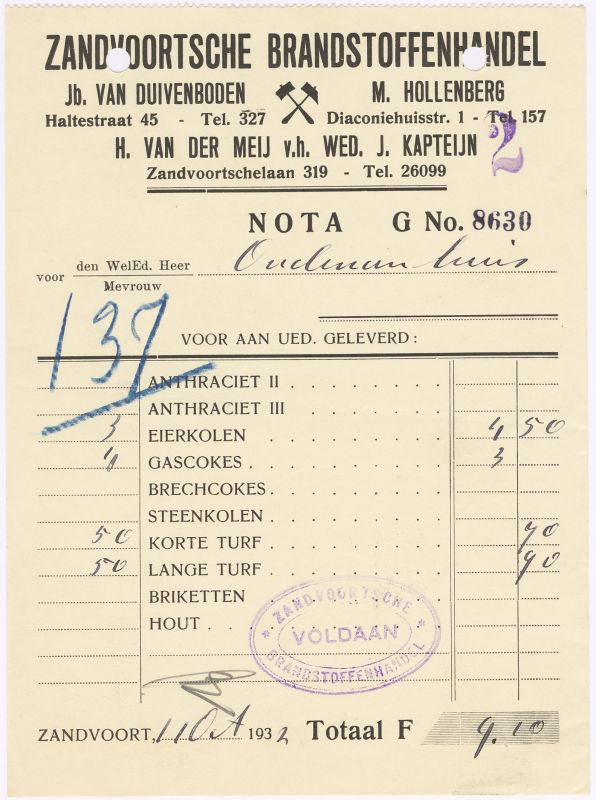 ZANDVOORTSCHE BRANDSTOFFENHANDEL
Jb. VAN DUIVENBODEN M. HOLLENBERG
Haltestraat 45 - Tel. 327 Diaconiehuisstr. 1 - Tel. 157
H. VAN DER MEIJ v.h. WED. J. KAPTEIJN
2
Zandvoortschelaan 319 - Tel. 26099
NOTA G No. 8630
voor den WelEd. Heer Mevrouw Oudemanhuis
137
VOOR AAN UED. GELEVERD:
ANTHRACIET II
ANTHRACIET III
3 EIERKOLEN 4 50
4 GASCOKES 3
BRECHCOKES
STEENKOLEN
50 KORTE TURF 70
50 LANGE TURF 90
BRIKETTEN
HOUT
* ZANDVOORTSCHE *
VOLDAAN
BRANDSTOFFENHANDEL
ZANDVOORT, 1 Oct 1932 Totaal F 9.10